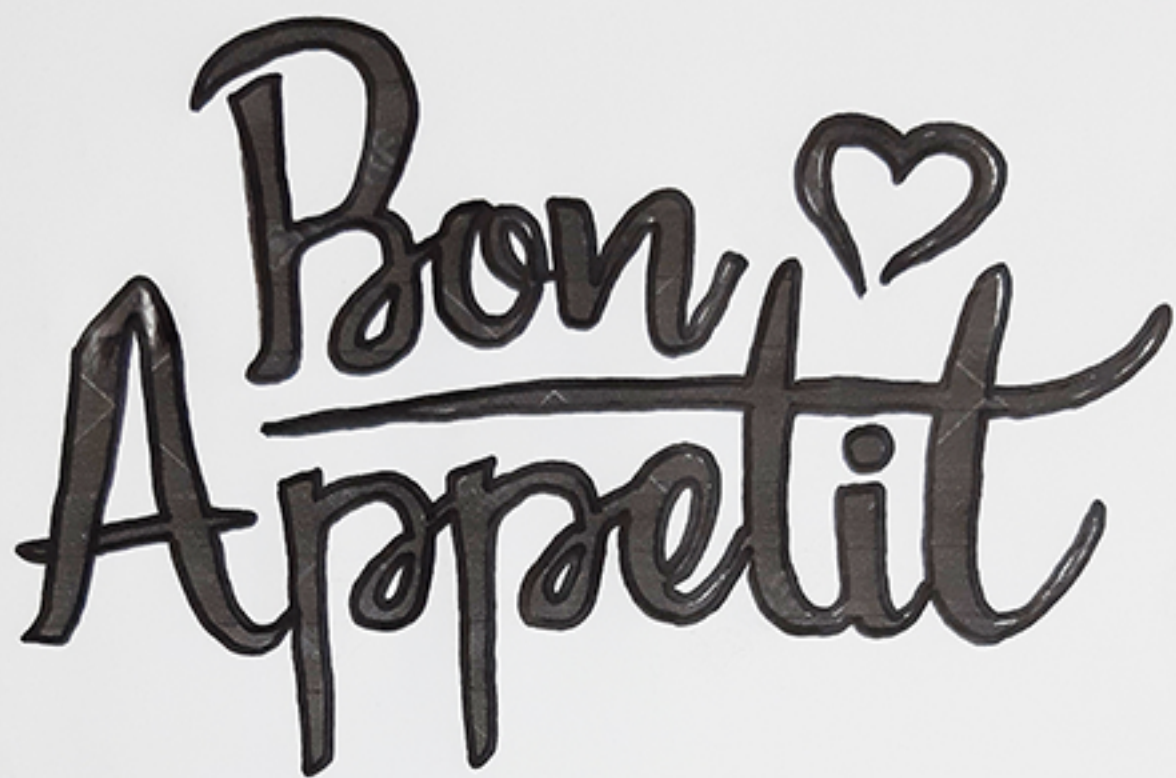 Bon
Appetit